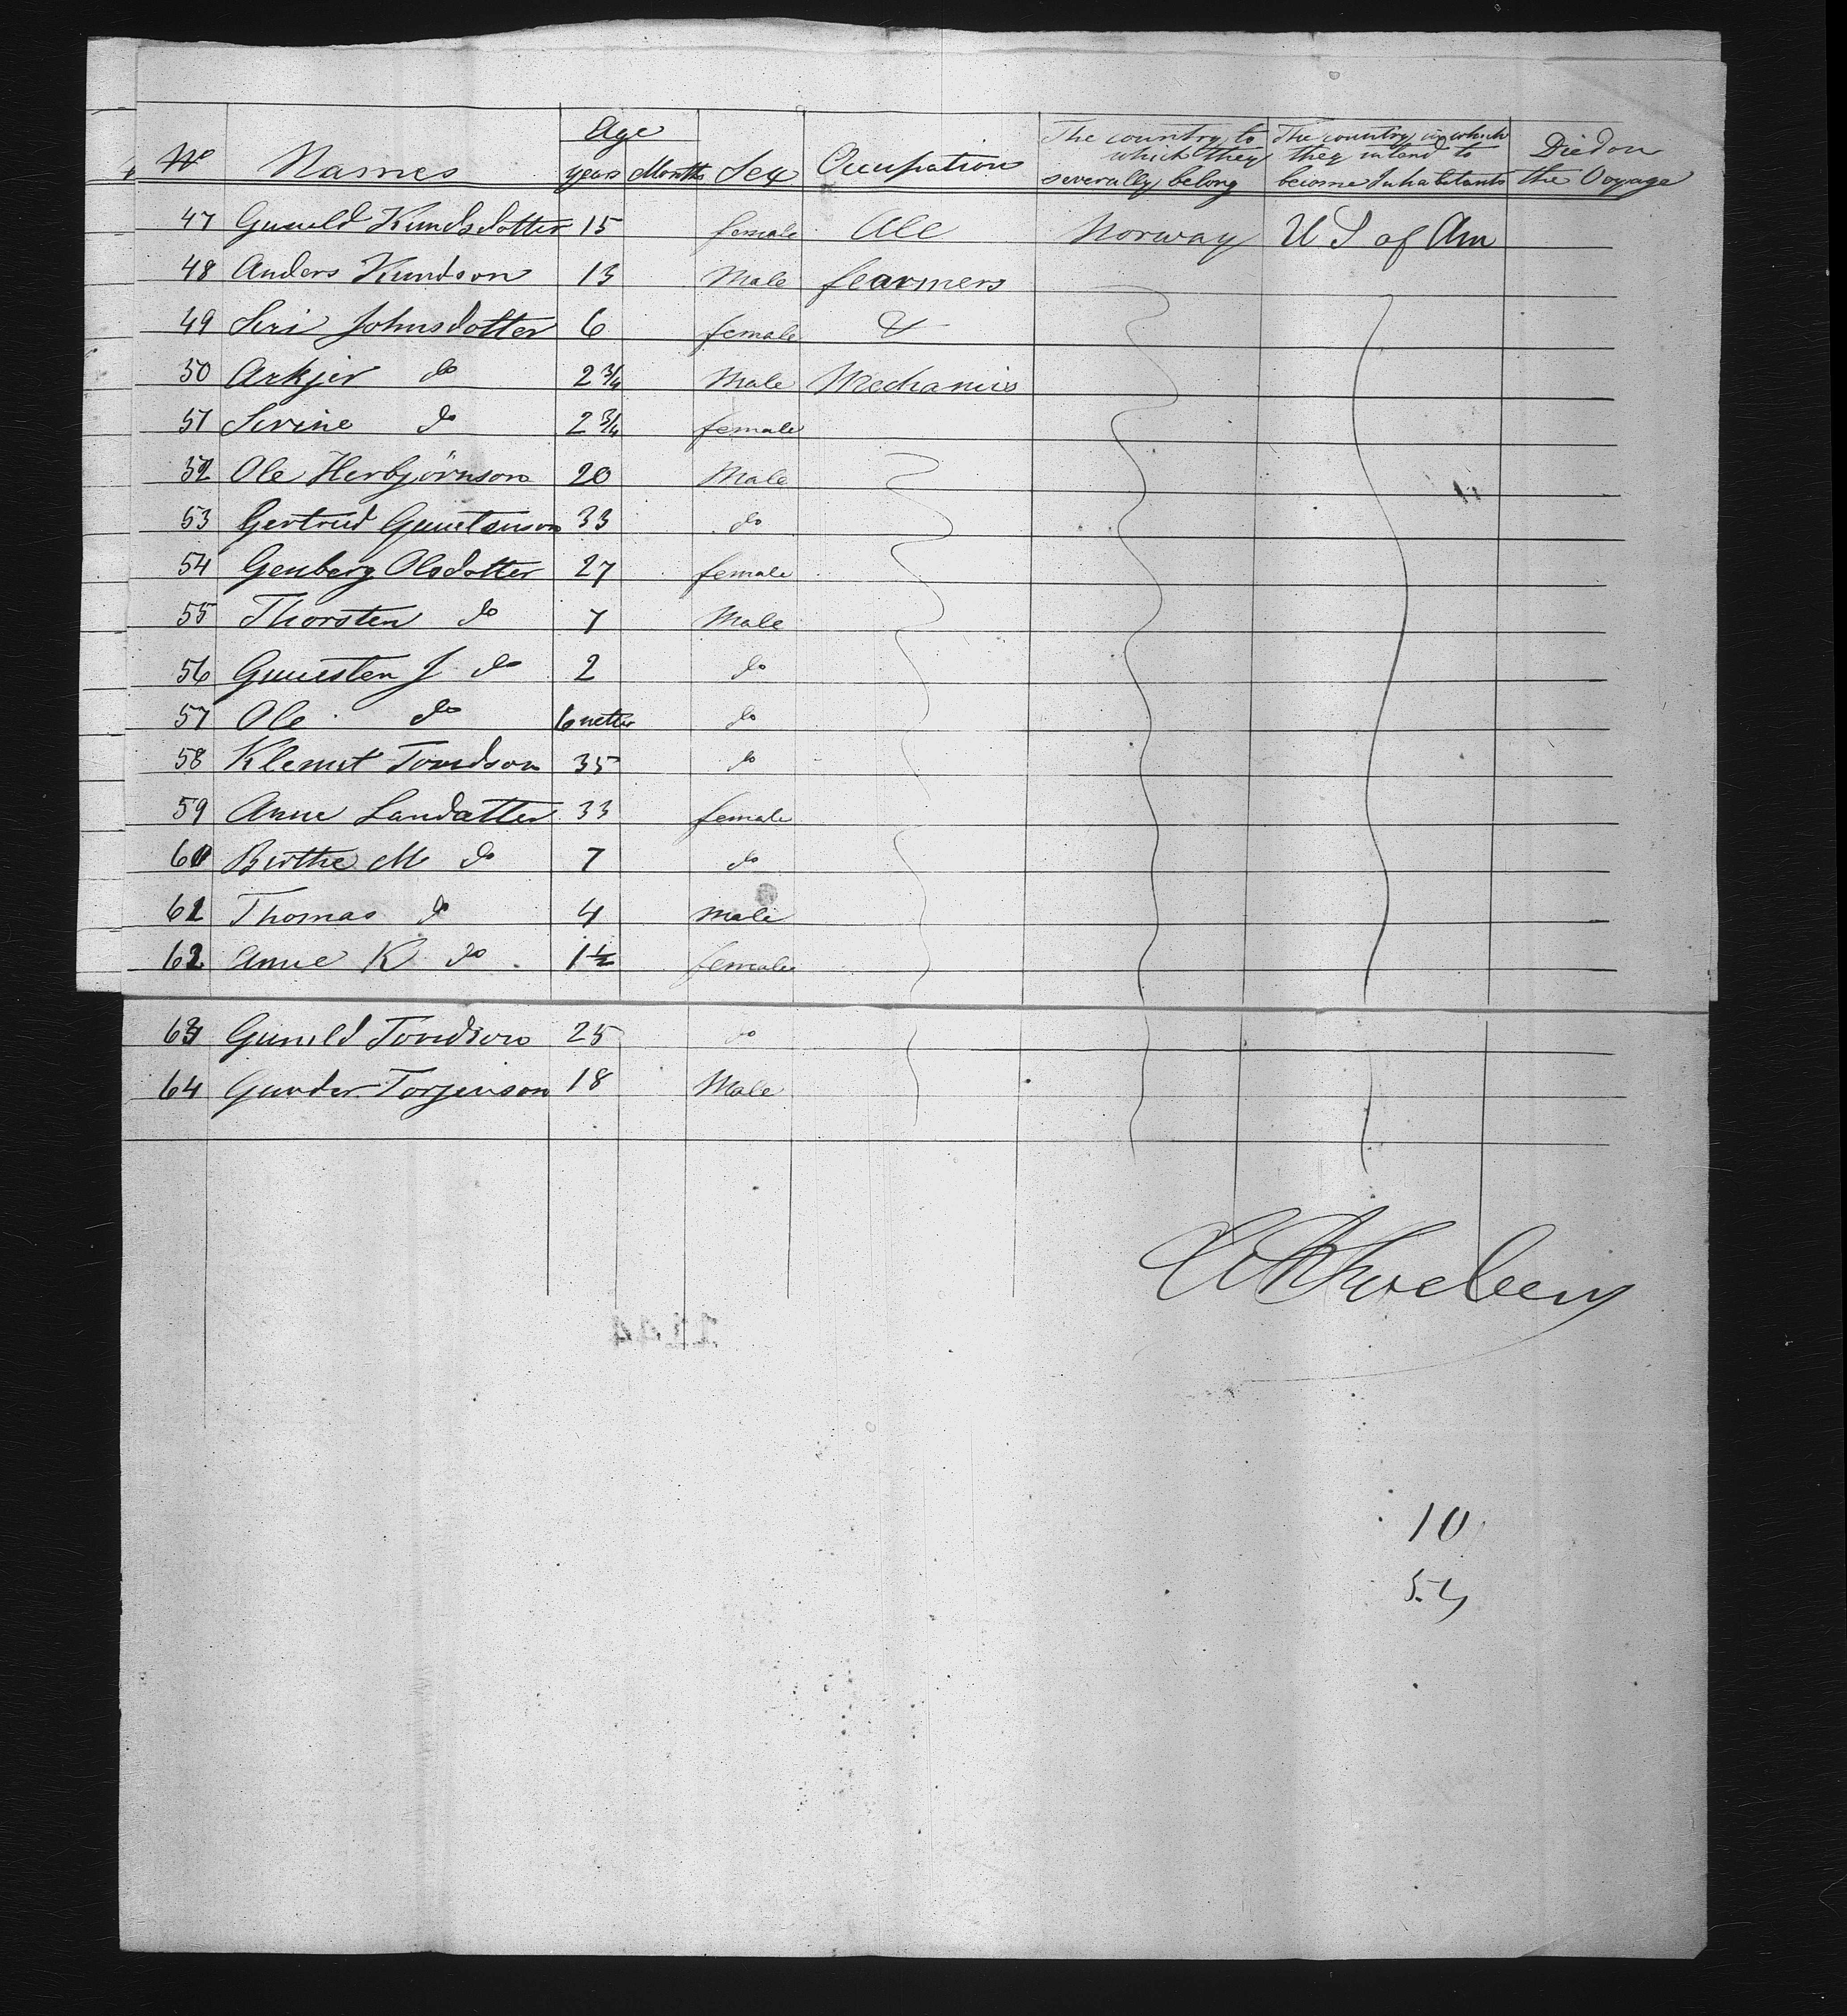 No Names Age years Months Sex Occupation The country to which they severally belong The country in which they intend to become Inhabitants Died on the Voyage
47 Gunild Knudsdotter 15 female All Norway U S of Am
48 Anders Knudson 13 Male fearmers
49 Siri Johnsdotter 6 female &
50 Askjer do 2 3/4 Male Mechanics
51 Sirine do 2 3/4 female
52 Ole Herbjörnson 20 Male
53 Gertrud Gunstenson 33 do
54 Genberg Olsdotter 27 female
55 Thorsten do 7 Male
56 Gunesten J do 2 do
57 Ole do 6 do
58 Klemet Tovedson 35 do
59 Anne Landatter 33 female
60 Birthe M do 7 do
61 Thomas do 4 male
62 Anne K do 1 1/2 female
63 Gunild Tovdson 25 do
64 Gunder Torjenson 18 Male
10
54